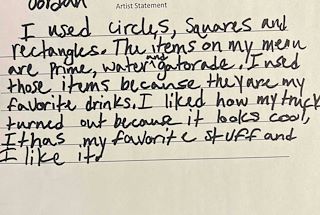 Jordan
Artist Statement
I used circles, squares and
rectangles. The items on my menu
are Prime, water and gatorade. I used
those items because they are my
favorite drinks. I liked how my truck
turned out because it looks cool,
It has my favorite stuff and
I like it.